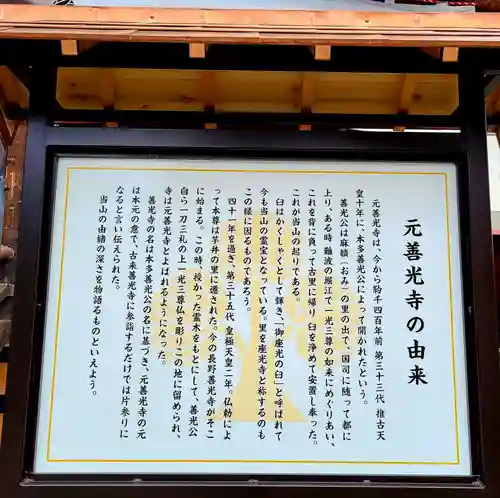 元善光寺の由来
元善光寺は、今から約千四百年前 第三十三代 推古天
皇十年に、本多善光公によって開かれたという。
善光公は麻績(おみ)の里の出で、国司に随って都に
上り、ある時 難波の堀江で一光三尊の如来にめぐりあい、
これを背に負って古里に帰り 臼を浄めて安置し奉った。
これが当山の起りである。
臼はかくしゃくとして輝き、「御座光の臼」と呼ばれて
今も当山の霊宝となっている。里を座光寺と称するのも
この縁に因るものであろう。
四十一年を過ぎ、第三十五代 皇極天皇二年。仏勅によ
って本尊は芋井の里に遷された。今の長野善光寺がそこ
に始まる。この時、授かった霊木をもとにして、善光公
自ら一刀三礼の上 一光三尊仏を彫り この地に留められ、
寺は元善光寺とよばれるようになった。
善光寺の名は本多善光公の名に基づき、元善光寺の元
は本元の意で、古来善光寺に参詣するだけでは片参りに
なると言い伝えられた。
当山の由緒の深さを物語るものといえよう。